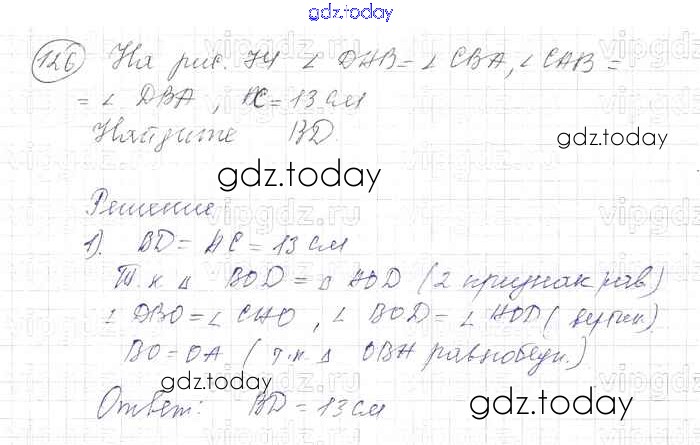 gdz.today
126 На рис. 74 ∠ DAB = ∠ CBA, ∠ CAB =
= ∠ DBA, AC = 13 см
Найдите BD.
gdz.today
gdz.today
Решение
1). BD = AC = 13 см
Т.к. Δ BOD = Δ AOD (2 признак рав)
∠ DBO = ∠ CAO, ∠ BOD = ∠ AOD (вертик.)
BO = OA (т.к. Δ OBA равнобедр.)
gdz.today
gdz.today
Ответ: BD = 13 см